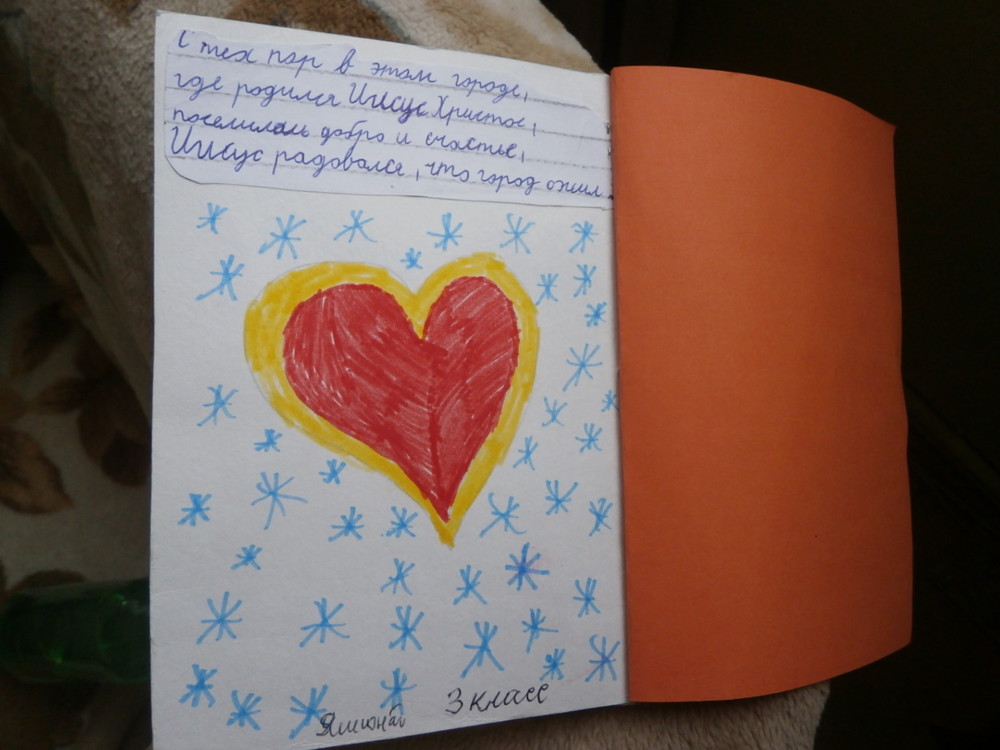 С тех пор в этом городе,
где родился Иисус Христос,
поселились добро и счастье,
Иисус радовался, что город ожил.
3 класс